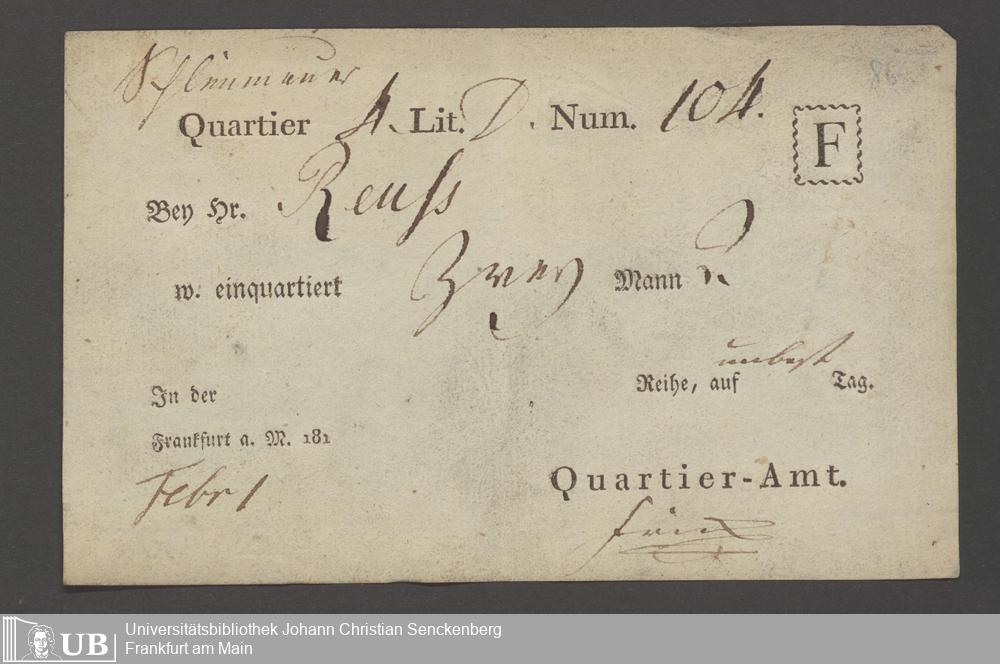 Quartier 4. Lit. D. Num. 104.
F
Bey Hr. Reuss
w. einquartiert Zwey Mann 2
Reihe, auf unbest Tag.
In der
Frankfurt a. M. 181
Febr 1
Quartier-Amt.
UB
Universitätsbibliothek Johann Christian Senckenberg
Frankfurt am Main